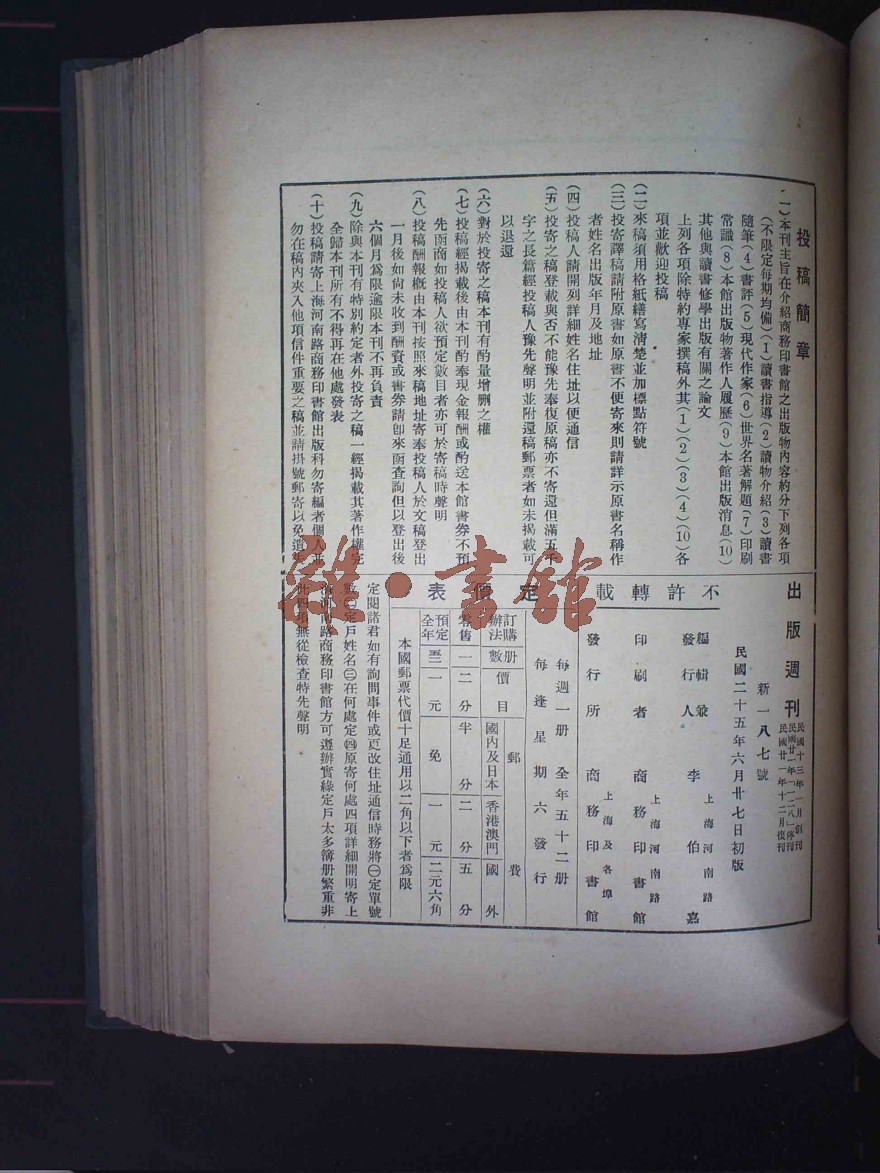 投稿簡章
(一)本刊主旨在介紹商務印書館之出版物內容約分下列各項
(不限定每期均備)(1)讀書指導(2)讀物介紹(3)讀書
隨筆(4)書評(5)現代作家(6)世界名著解題(7)印刷
常識(8)本館出版物著作人履歷(9)本館出版消息(10)
其他與讀書修學出版有關之論文
上列各項除特約專家撰稿外其(1)(2)(3)(4)(10)各
項並歡迎投稿
(二)來稿須用格紙繕寫清楚並加標點符號
(三)投寄譯稿請附原書如原書不便寄來則請詳示原書名稱作
者姓名出版年月及地址
(四)投稿人請開列詳細姓名住址以便通信
(五)投寄之稿登載與否不能豫先奉復原稿亦不寄還但滿五千
字之長篇經投稿人豫先聲明並附還稿郵票者如未揭載可
以退還
(六)對於投寄之稿本刊有酌量增刪之權
(七)投稿經揭載後由本刊酌奉現金報酬或酌送本館書券不預
先函商如投稿人欲預定數目者亦可於寄稿時聲明
(八)投稿酬報槪由本刊按照來稿地址寄奉投稿人於文稿登出
一月後如尙未收到酬資或書券請卽來函查詢但以登出後
六個月爲限逾限本刊不再負責
(九)除與本刊有特別約定者外投寄之稿一經揭載其著作權完
全歸本刊所有不得再在他處發表
(十)投稿請寄上海河南路商務印書館出版科勿寄編者個人並
勿在稿內夾入他項信件重要之稿並請掛號郵寄以免遺失
出版週刊
民國十三年一月創刊
民國廿一年「一二八」停刊
民國廿一年十二月復刊
新一八七號
民國二十五年六月廿七日初版
不許轉載
編輯兼
發行人 李伯嘉
上海河南路
印刷者 商務印書館
上海河南路
發行所 商務印書館
上海及各埠
每週一册 全年五十二册
每逢星期六發行
定價表
訂購辦法 册數 價目 郵費
國內及日本 香港澳門 國外
零售 一 二分 半分 二分 五分
預定全年 五二 一元 免 一元 二元六角
本國郵票代價十足通用以二角以下者爲限
定閱諸君如有詢問事件或更改住址通信時務將㊀定單號
數㊁定戶姓名㊂在何處定㊃原寄何處四項詳細開明寄上
海河南路商務印書館方可遵辦實緣定戶太多簿册繁重非
此四項無從檢查特先聲明
雜·書館